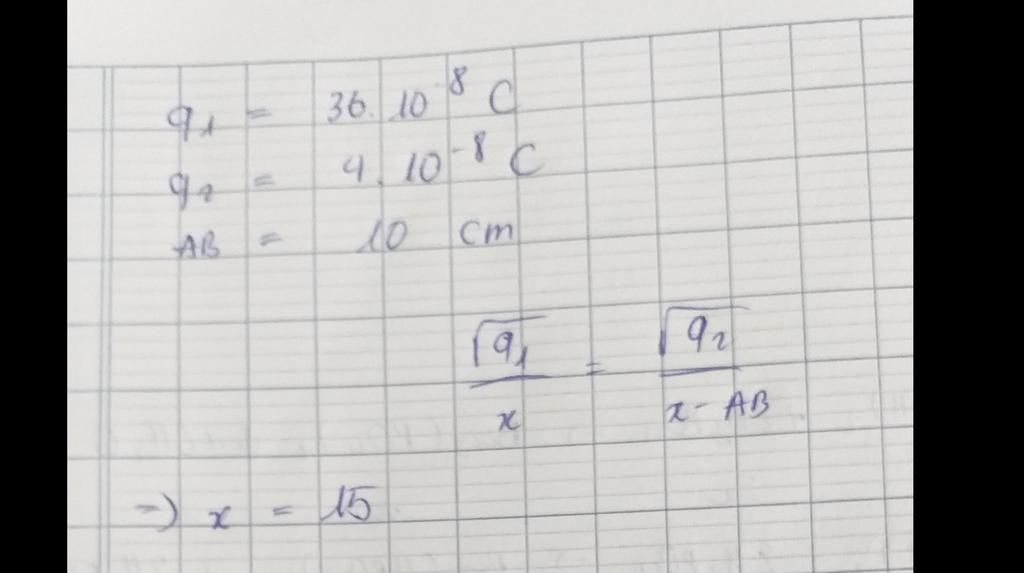 q₁ = 36. 10⁻⁸ C
q₂ = 4. 10⁻⁸ C
AB = 10 cm
√q₁ / x = √q₂ / x - AB
=> x = 15